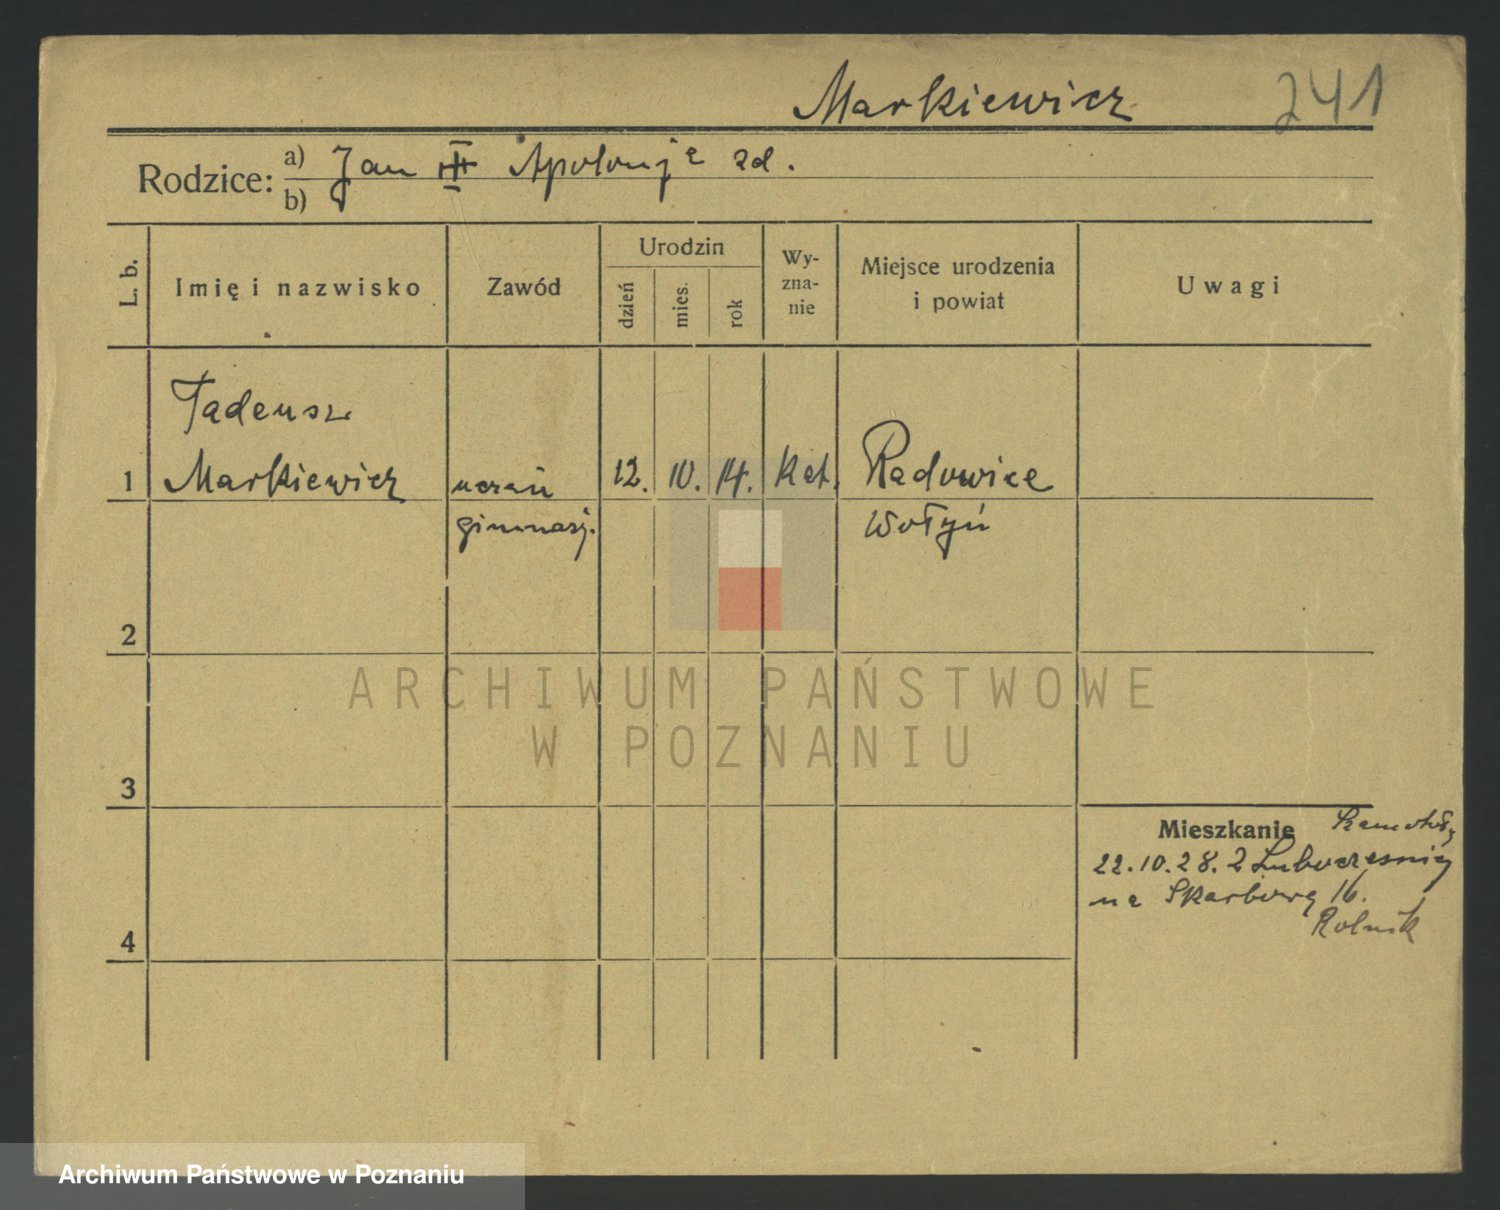 Markiewicz
241
Rodzice: a) Jan Apolonja zd.
b)
L. b.
Imię i nazwisko
Zawód
Urodzin
dzień
mies.
rok
Wy-
zna-
nie
Miejsce urodzenia
i powiat
Uwagi
Tadeusz
1 Markiewicz uczeń 12. 10. 14. Kat. Radowice
gimnazj. Wołyń
2
ARCHIWUM PAŃSTWOWE
W POZNANIU
3
Mieszkanie Szamotuły
22.10.28. z
na Skarbową 16.
Rolnik
4
Archiwum Państwowe w Poznaniu